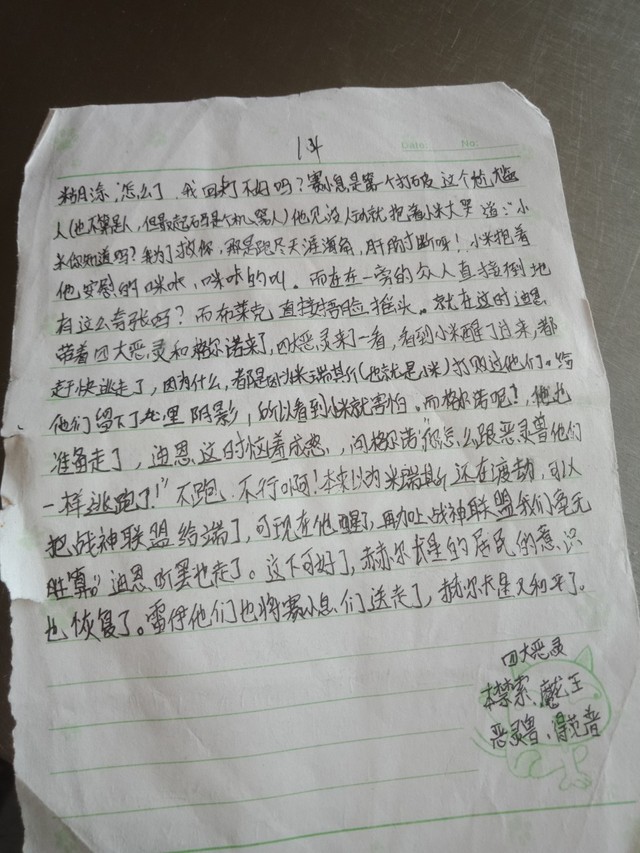 13
Date: No:
糊涂,怎么了,我回来不好吗?赛小息是第一个打破这个尴尬
人(也不算是人,但最起码是个机器人)他见没人动就抱着小米大哭道:"小
米你知道吗?我为了救你,那是跑尽天涯海角,肝肠寸断呀!小米抱着
他安慰的咪咪,咪咪的叫。而在在一旁的众人直接倒地
有这么夸张吗?而布莱克直接捂脸摇头。就在这时迪恩
带着四大恶灵和格尔诺来了,四大恶灵来了一看,看到小米醒了过来,都
赶快逃走了,因为什么,都是以米瑞斯(也就是小米)打败过他们。给
他们留下了心里阴影,所以看到小米就害怕。而格尔诺呢?,他也
准备走了,迪恩这时恼羞成怒,问格尔诺"你怎么跟恶灵兽他们
一样逃跑了!""不跑,不行啊!本来以为米瑞斯还在渡劫,可以
把战神联盟给端了,可现在他醒了,再加上战神联盟我们毫无
胜算。"迪恩听罢也走了。这下可好了,赫尔卡星的居民的意识
也恢复了。雷伊他们也将赛小息们送走了,赫尔卡星又和平了。
四大恶灵
魔王
恶灵兽、